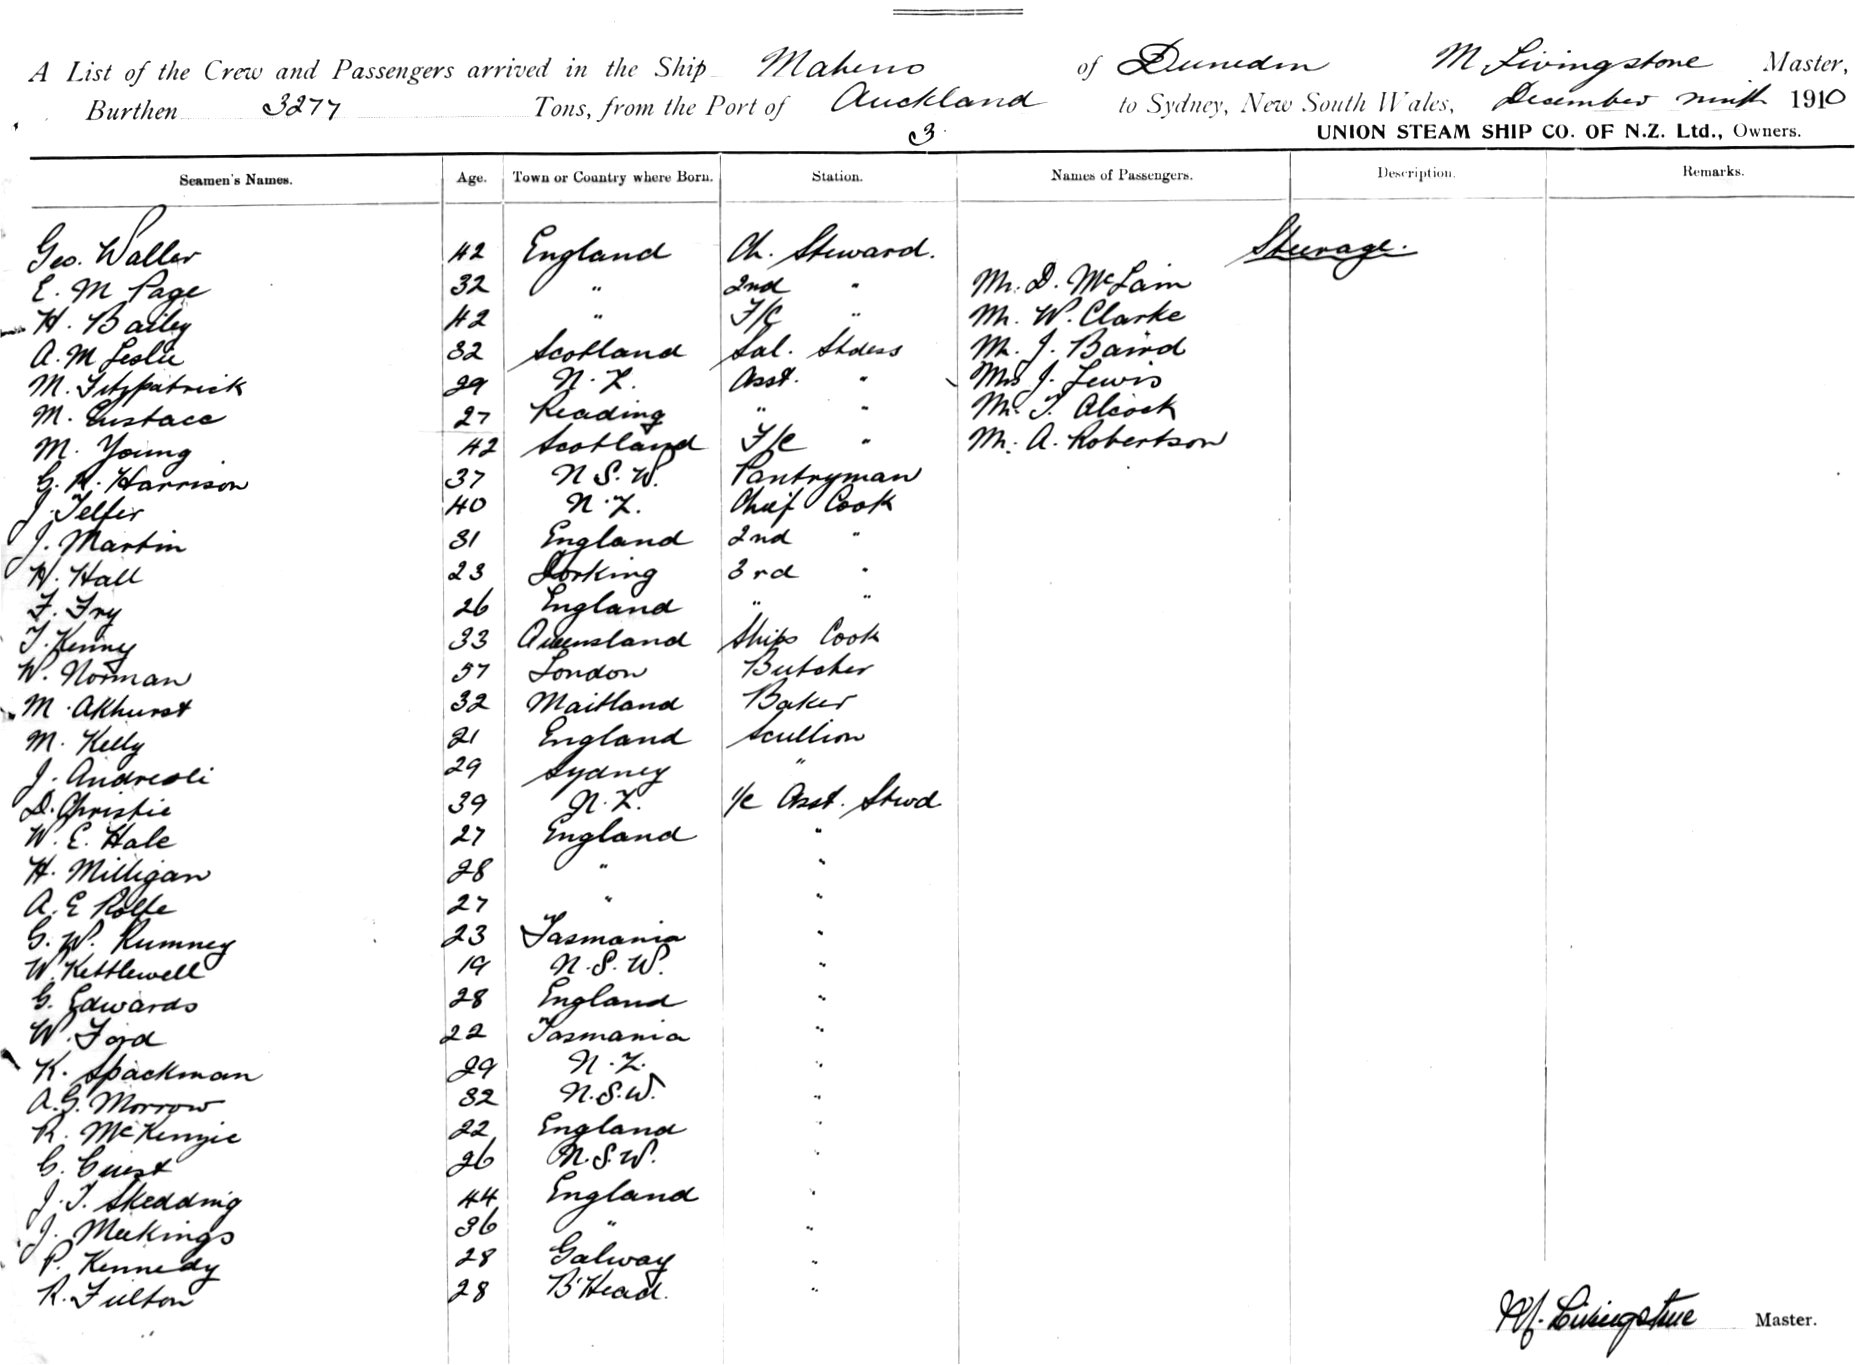 A List of the Crew and Passengers arrived in the Ship Maheno of Dunedin M Livingstone Master,
Burthen 3277 Tons, from the Port of Auckland to Sydney, New South Wales, December ninth 1910
3 UNION STEAM SHIP CO. OF N.Z. Ltd., Owners.
Seamen's Names. Age. Town or Country where Born. Station. Names of Passengers. Description. Remarks.
Geo. Waller 42 England Ch. Steward. Steerage.
E. M Page 32 " 2nd " Mr. D. McLain
H. Bailey 42 " F/C " Mr. W. Clarke
A. M Leslie 32 Scotland Sal. Stdess Mr. J. Baird
M. Fitzpatrick 29 N. Z. Asst. " Mrs J. Lewis
M. Eustace 27 Reading " " Mr. T. Alcock
M. Young 42 Scotland F/C " Mr. A. Robertson
G. R. Harrison 37 N S. W. Pantryman
J. Telfer 40 N. Z. Chief Cook
J. Martin 31 England 2nd "
H. Hall 23 Dorking 3rd "
F. Fry 26 England " "
T. Kenny 33 Queensland Ships Cook
W. Norman 57 London Butcher
M. Akhurst 32 Maitland Baker
M. Kelly 21 England Scullion
J. Andreoli 29 Sydney "
D. Christie 39 N. Z. 1/c Asst. Stwd
W. E. Hale 27 England "
H. Milligan 28 " "
A. E Rolfe 27 " "
G. W. Rumney 23 Tasmania "
W. Kettlewell 19 N. S. W. "
G. Edwards 28 England "
W. Ford 22 Tasmania "
K. Spackman 29 N. Z. "
A. G. Morrow 32 N. S. W. "
R. McKenzie 22 England "
G. Guest 26 N. S. W. "
J. T. Skedding 44 England "
J. Meekings 36 " "
P. Kennedy 28 Galway "
R. Fulton 28 B'Head. "
M. Livingstone Master.